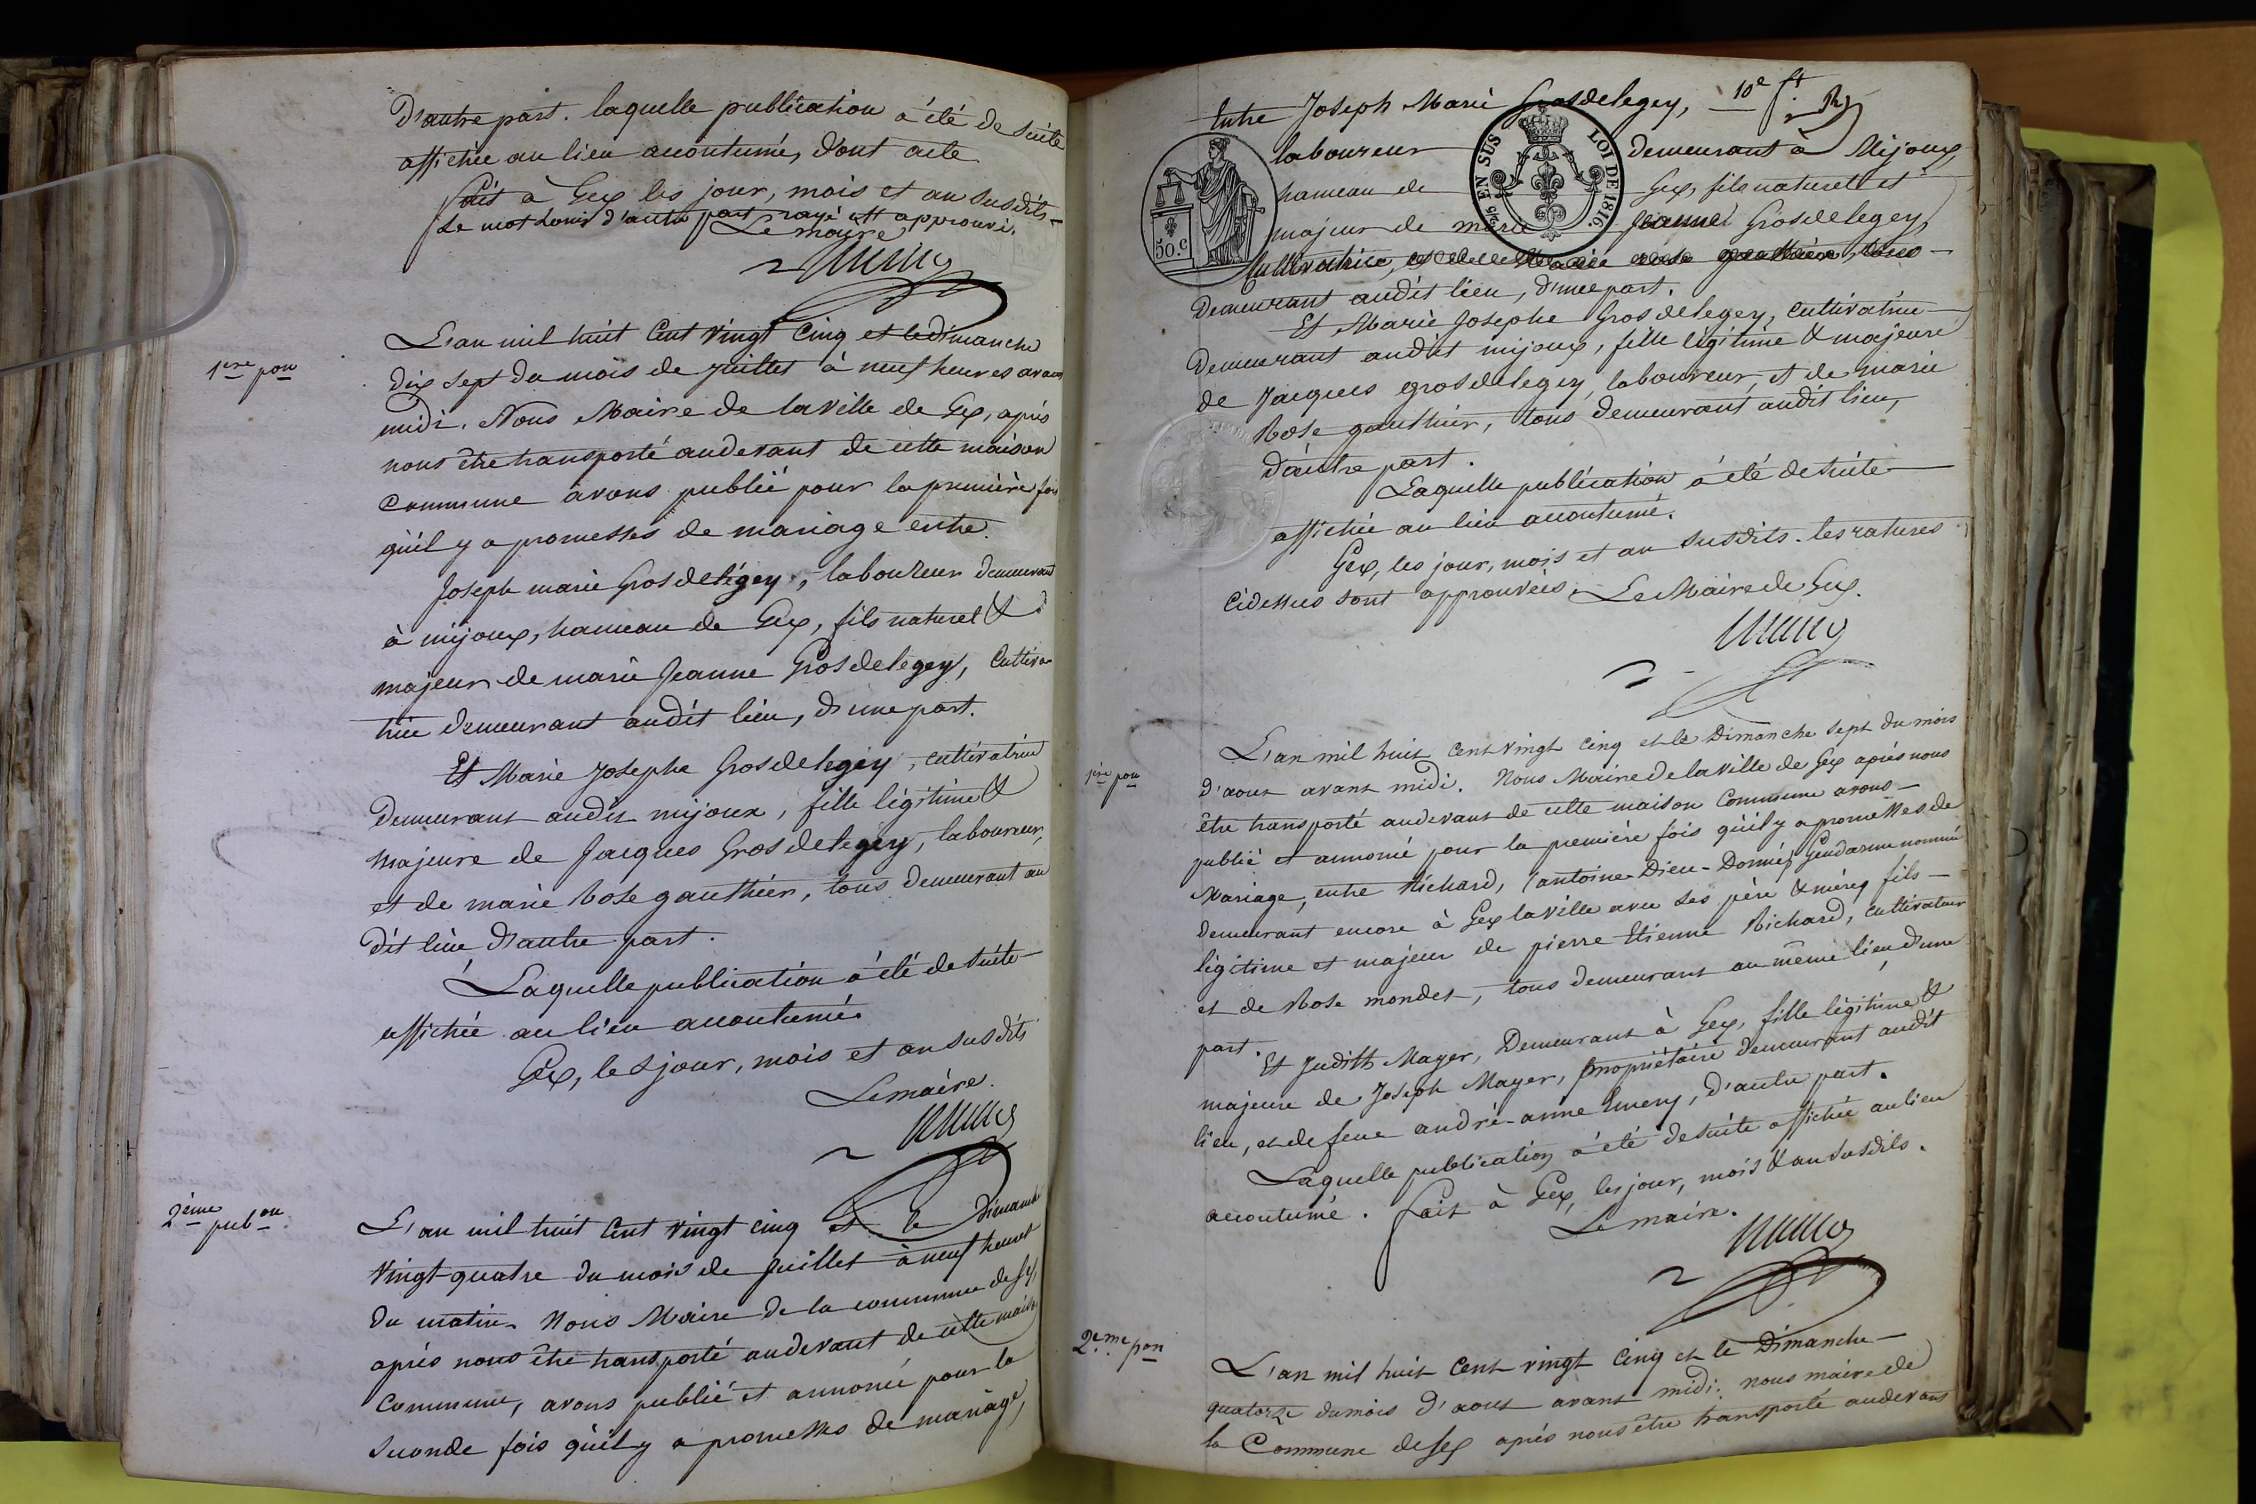 D'autre part. laquelle publication a été de suite
affichée au lieu accoutumé, dont acte
fait à Gex les jour, mois et an susdits.
Le mot Louis d'autre part rayé est approuvé.
Le maire
1ere pon
L'an mil huit Cent vingt cinq et le dimanche
dix sept du mois de juillet à neuf heures avant
midi. Nous Maire de la ville de Gex, après
nous être transporté audevant de cette maison
commune avons publié pour la première fois
qu'il y a promesses de mariage entre.
Joseph marie Grosdelégey, laboureur demeurant
à mijoux, hameau de Gex, fils naturel &
majeur de marie Jeanne Grosdelegey, Cultiva-
trice demeurant audit lieu, d'une part.
Et Marie Josephe Grosdelegey, cultivatrice
demeurant audit mijoux, fille légitime &
majeure de Jacques Grosdelegey, laboureur,
et de marie Rose gauthier, tous demeurant au
dit lieu, d'autre part.
Laquelle publication a été de suite
affichée au lieu accoutumé.
Gex, les jour, mois et an susdits
Le maire.
2ème pubon
L'an mil huit Cent vingt cinq et le Dimanche
vingt-quatre du mois de Juillet à neuf heures
du matin. Nous Maire de la commune de Gex,
après nous être transporté audevant de cette maison
Commune, avons publié et annoncé pour la
seconde fois qu'il y a promesses de mariage,
10e ft
Entre Joseph Marie Grosdelegey,
laboureur demeurant à Mijoux,
hameau de Gex, fils naturel et
majeur de marie Jeanne Grosdelegey,
Cultivatrice, et de Marie Rose gauthier, tous
demeurant audit lieu, d'une part.
Et Marie Josephe Grosdelegey, cultivatrice
demeurant audit mijoux, fille légitime & majeure
de Jacques grosdelegey, laboureur, et de marie
Rose gauthier, tous demeurant audit lieu,
d'autre part.
Laquelle publication a été de suite
affichée au lieu accoutumé.
Gex, les jour, mois et an susdits. les ratures
cidessus sont approuvées. Le Maire de Gex.
EN SUS LOI DE 1816.
50.c
1ère pon
L'an mil huit cent vingt cinq et le Dimanche sept du mois
d'aout avant midi. Nous Maire de la ville de Gex après nous
être transporté audevant de cette maison Commune avons
publié et annoncé pour la première fois qu'il y a promesses de
Mariage, entre Richard, (antoine-Dieu-Donné) Gendarme nommé
demeurant encore à Gex la ville avec ses père & mère, fils
légitime et majeur de pierre Etienne Richard, cultivateur
et de Rose mondet, tous demeurant au même lieu, d'une
part.
Et Judith Mayer, Demeurant à Gex, fille légitime &
majeure de Joseph Mayer, propriétaire demeurant audit
lieu, et de feue andré-anne Emery, d'autre part.
Laquelle publication a été de suite affichée au lieu
accoutumé. fait à Gex, les jour, mois & an susdits.
Le maire.
2.eme pon
L'an mil huit Cent vingt Cinq et le Dimanche
quatorze du mois d'aout avant midi. nous maire de
la Commune de Gex après nous être transporté audevant